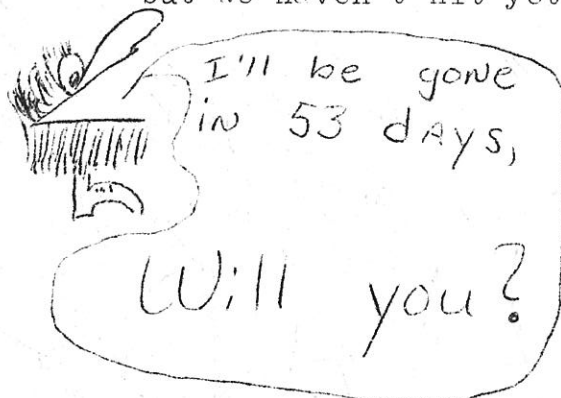 but we haven't hit yet
I'll be gone
in 53 days,
Will you?